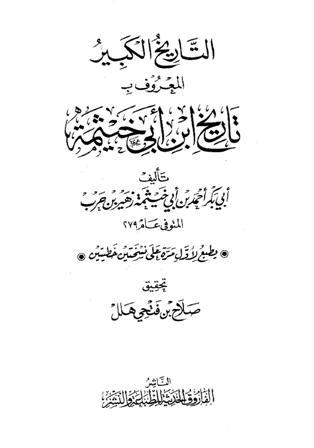 التاريخ الكبير
المعروف بـ
تاريخ ابن أبي خيثمة
تأليف
أبي بكر أحمد بن أبي خيثمة زهير بن حرب
المتوفى عام ٢٧٩
يطبع لأول مرة على نسختين خطيتين
تحقيق
صلاح بن فتحي هلل
الناشر
الفاروق الحديثة للطباعة والنشر